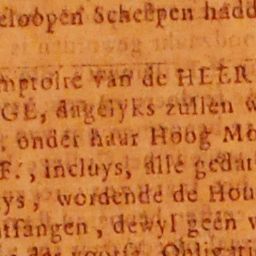 eloopen Scheepen hadd
mptoire van de HEER
GE, dagelyks zullen w
. onder haar Hoog Mo
F., incluys, alle gedan
ys, wordende de Hou
ntfangen, dewyl geen v
Obligati